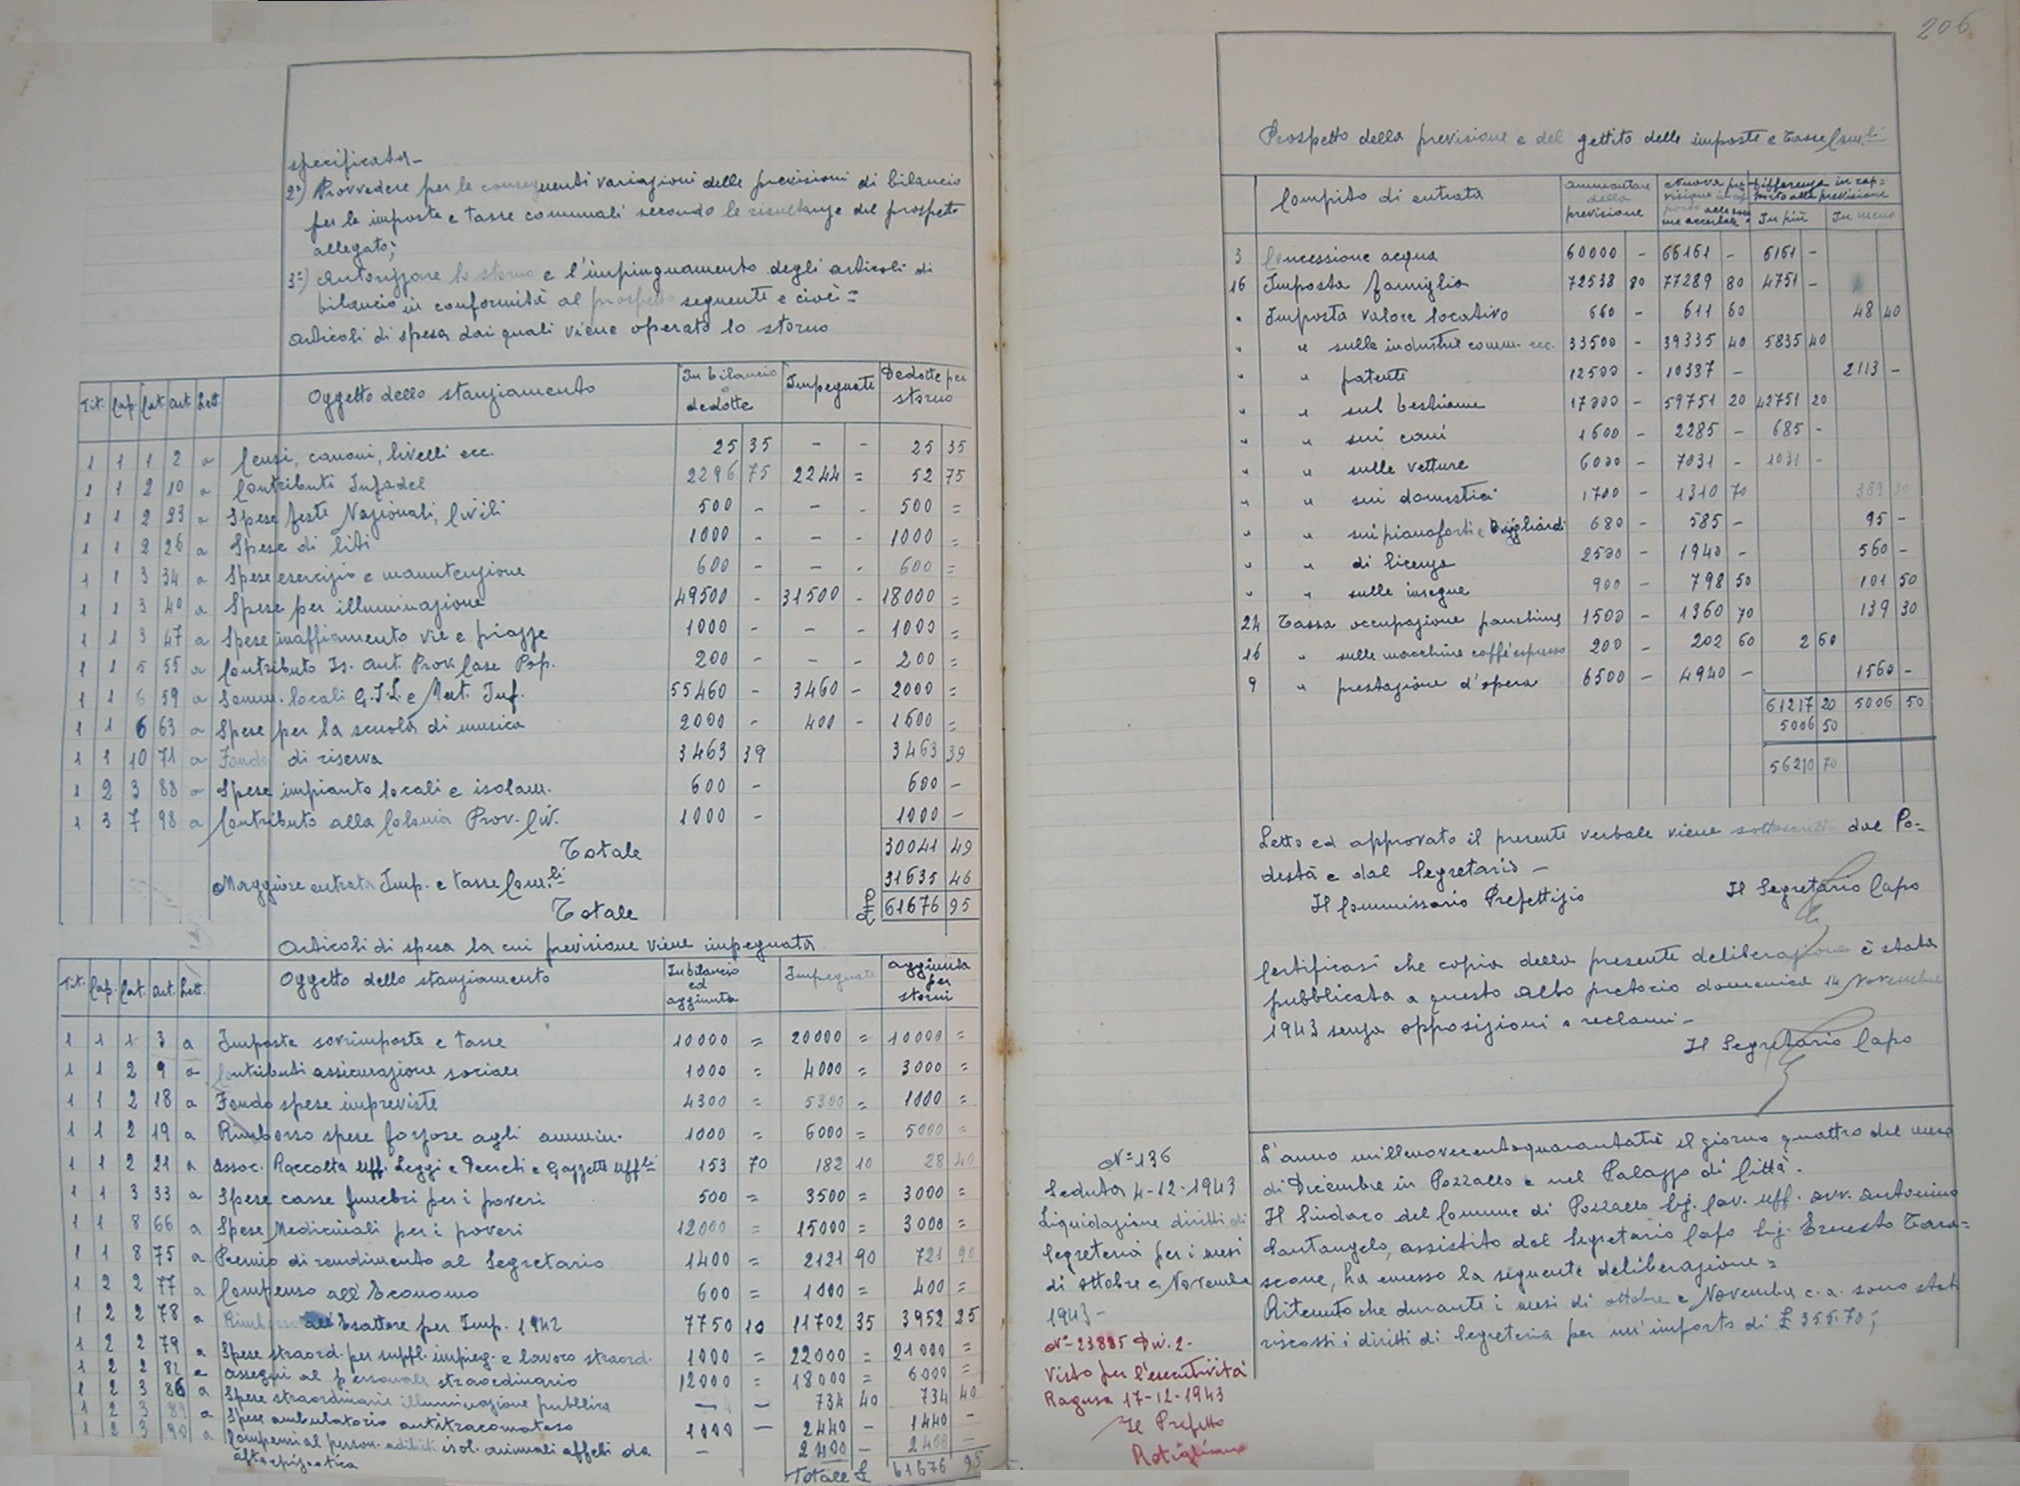 specificata -
2°) Provvedere per le conseguenti variazioni delle previsioni di bilancio
per le imposte e tasse comunali secondo le risultanze del prospetto
allegato;
3°) Autorizzare lo storno e l'impinguamento degli articoli di
bilancio in conformità al prospetto seguente e cioè =
Articoli di spesa dai quali viene operato lo storno
Tit. Cap. Cat. Art. Lett. Oggetto dello stanziamento In bilancio o dedotte Impegnate Dedotte per storno
1 1 1 2 a Censi, canoni, livelli ecc. 25 35 - - 25 35
1 1 2 10 a Contributi Infadel 2296 75 2244 = 52 75
1 1 2 23 a Spese feste Nazionali, Civili 500 - - - 500 =
1 1 2 26 a Spese di liti 1000 - - - 1000 =
1 1 3 34 a Spese esercizio e manutenzione 600 - - - 600 =
1 1 3 40 a Spese per illuminazione 49500 - 31500 - 18000 =
1 1 3 47 a Spese inaffiamento vie e piazze 1000 - - - 1000 =
1 1 5 55 a Contributo Is. Aut. Prov. Case Pop. 200 - - - 200 =
1 1 6 59 a Somm. locali G.I.L. e Mat. Inf. 55460 - 3460 - 2000 =
1 1 6 63 a Spese per la scuola di musica 2000 - 400 - 1600 =
1 1 10 71 a Fondo di riserva 3463 39 3463 39
1 2 3 88 a Spese impianto locali e isolam. 600 - 600 -
1 3 7 98 a Contributo alla Colonia Prov. Liv. 1000 - 1000 -
Totale 30041 49
Maggiore entrata Imp. e tasse Com.li 31635 46
Totale 61676 95
Articoli di spesa la cui previsione viene impegnata
Tit. Cap. Cat. Art. Lett. Oggetto dello stanziamento In bilancio ed aggiunta Impegnate aggiunta per storni
1 1 1 3 a Imposte sovrimposte e tasse 10000 = 20000 = 10000 =
1 1 2 9 a Contributi assicurazione sociale 1000 = 4000 = 3000 =
1 1 2 18 a Fondo spese impreviste 4300 = 5300 = 1000 =
1 1 2 19 a Rimborso spese forzose agli ammin. 1000 = 6000 = 5000 =
1 1 2 21 a Assoc. Raccolta Uff. Leggi e Decreti e Gazzetti Uff.li 153 70 182 10 28 40
1 1 3 33 a Spese casse funebri per i poveri 500 = 3500 = 3000 =
1 1 8 66 a Spese Medicinali per i poveri 12000 = 15000 = 3000 =
1 1 8 75 a Premio di rendimento al Segretario 1400 = 2121 90 721 90
1 2 2 77 a Compenso all'Economo 600 = 1000 = 400 =
1 2 2 78 a Rimborso all'Esattore per Imp. 1942 7750 10 11702 35 3952 25
1 2 2 79 a Spese straord. per suppl. impieg. e lavoro straord. 1000 = 22000 = 21000 =
1 2 2 82 e assegni al personale straordinario 12000 = 18000 = 6000 =
1 2 3 86 a Spese straordinarie illuminazione pubblica - - 734 40 734 40
1 2 3 89 a Spese ambulatorio antitracomatoso 1000 - 2440 - 1440 -
1 2 3 90 a Compensi al person. adibiti isol. animali affetti da - 2400 - 2400 -
afta epizootica
Totale £ 61676 95
206
Prospetto della previsione e del gettito delle imposte e tasse Com.li
Compito di entrata Ammontare della previsione Nuova previsione Differenza in rapporto alla previsione In più In meno
3 Concessione acqua 60000 - 66161 - 6161 -
16 Imposta famiglia 72538 80 77289 80 4751 -
" Imposta valore locativo 660 - 611 60 48 40
" " sulle industrie comm. ecc. 33500 - 39335 40 5835 40
" " patente 12500 - 10387 - 2113 -
" " sul bestiame 17000 - 59751 20 42751 20
" " sui cani 1600 - 2285 - 685 -
" " sulle vetture 6000 - 7031 - 1031 -
" " sui domestici 1700 - 1310 70 389 30
" " sui pianoforti e Bigliardi 680 - 585 - 95 -
" " di licenza 2500 - 1940 - 560 -
" " sulle insegne 900 - 798 50 101 50
24 Tassa occupazione panchine 1500 - 1360 70 139 30
16 " sulle macchine caffè espresso 200 - 202 60 2 60
9 " prestazione d'opera 6500 - 4940 - 1560 -
61217 20 5006 50
5006 50
56210 70
Letto ed approvato il presente verbale viene sottoscritto dal Po=
destà e dal Segretario -
Il Commissario Prefettizio Il Segretario Capo
Certificasi che copia della presente deliberazione è stata
pubblicata a questo Albo pretorio domenica 14 Novembre
1943 senza opposizioni o reclami -
Il Segretario Capo
N° 136
Seduta 4-12-1943
Liquidazione diritti di
Segreteria per i mesi
di ottobre e Novembre
1943 -
N° 23885 Div. 2-
Visto per l'esecutività
Ragusa 17-12-1943
Il Prefetto
L'anno millenovecentoquarantatrè il giorno quattro del mese
di Dicembre in Pozzallo e nel Palazzo di Città.
Il Sindaco del Comune di Pozzallo Sig. Cav. Uff. Avv. Antonino
Santangelo, assistito dal Segretario Capo Sig. Ernesto Tara=
scone, ha emesso la seguente deliberazione =
Ritenuto che durante i mesi di ottobre e Novembre c.a. sono stati
riscossi i diritti di Segreteria per un'importo di £ 355.70;